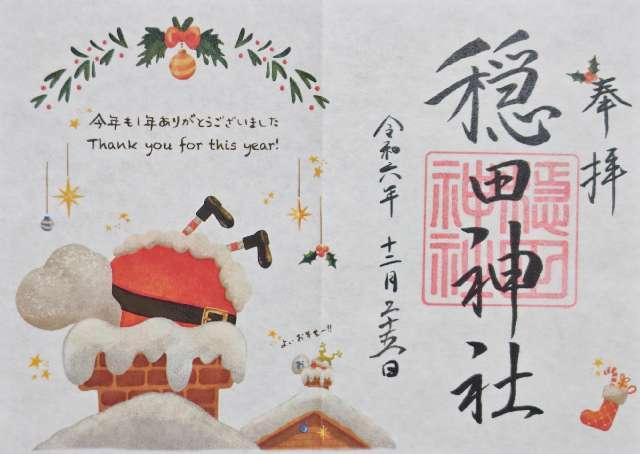 奉拝
穏田神社
隠田
神社
令和六年 十二月二十五日
今年も1年ありがとうございました
Thank you for this year!